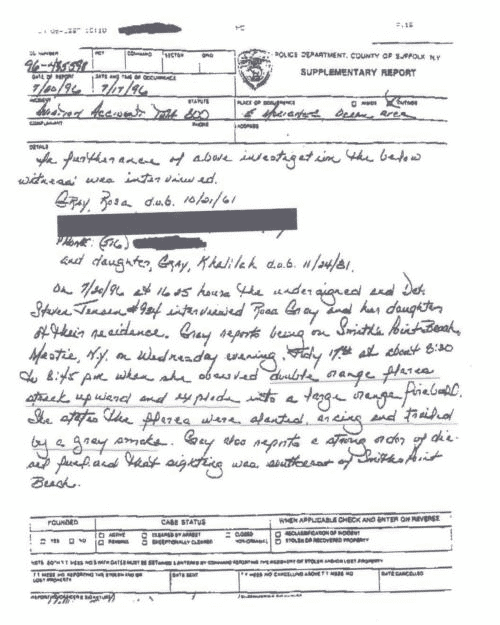 CC NUMBER PCT COMMAND SECTOR GRID
96-435598
POLICE DEPARTMENT, COUNTY OF SUFFOLK N.Y
SUPPLEMENTARY REPORT
DATE OF REPORT DATE AND TIME OF OCCURRENCE
7/20/96 7/17/96
INCIDENT STATUTE PLACE OF OCCURRENCE INSIDE OUTSIDE
Aviation Accident TWA 800 Ocean area
COMPLAINANT PHONE ADDRESS
DETAILS
In furtherance of above investigation the below
witness was interviewed.
Gray, Rosa d.o.b. 10/21/61
Phone: (516)
and daughter, Gray, Khalilah d.o.b. 11/24/81.
On 7/20/96 at 1625 hours the undersigned and Det.
Steven Jensen #924 interviewed Rosa Gray and her daughter
at their residence. Gray reports being on Smiths Point Beach,
Mastic, N.Y. on Wednesday evening, July 17th at about 8:30
to 8:45 pm when she observed double orange flares
streak upward and explode into a large orange fireball.
She states the flares were slanted, arcing and trailed
by a gray smoke. Gray also reports a strong odor of die-
sel fuel and that sighting was southeast of Smiths Point
Beach.
FOUNDED CASE STATUS WHEN APPLICABLE CHECK AND ENTER ON REVERSE
YES NO ACTIVE CLEARED BY ARREST CLOSED RECLASSIFICATION OF INCIDENT
PENDING EXCEPTIONALLY CLEARED NON-CRIMINAL STOLEN OR RECOVERED PROPERTY
DATE SENT DATE CANCELLED
LOST PROPERTY